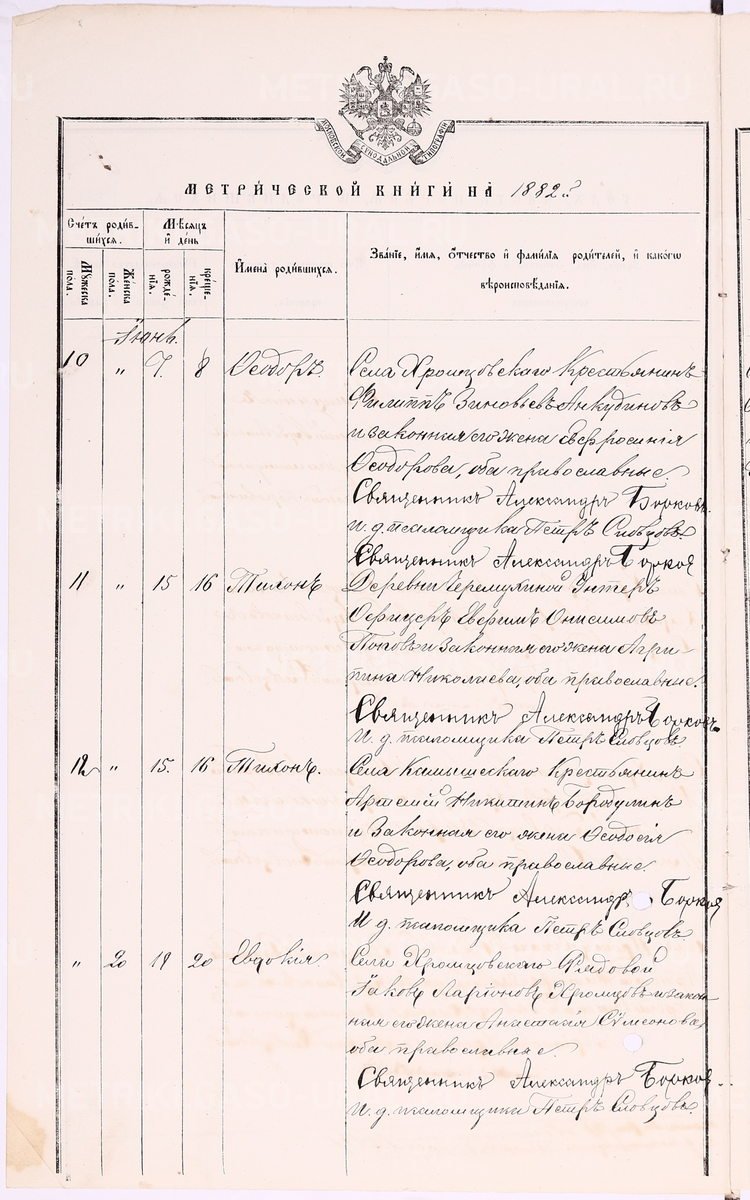 МОСКОВСКОЙ СѴНОДАЛЬНОЙ ТИПОГРАФІИ
МЕТРИЧЕСКОЙ КНИГИ НА 1882 г.
Счетъ родив-
шихся.
Мѣсяцъ
и день
Имена родившихся.
Званіе, имя, отчество и фамилія родителей, и какогѡ
вѣроисповѣданія.
Мужеска
пола.
Женска
пола.
рожде-
нія.
креще-
нія.
Іюнь.
10 „ 7. 8 Ѳеодоръ. Села Хромцовскаго Крестьянинъ
Филиппъ Зиновьевъ Анкудиновъ
и законная его жена Евфросинія
Ѳеодорова, оба православные
Священникъ Александръ Борковъ.
И. д. псаломщика Петръ Словцовъ.
Священникъ Александръ Борков
11 „ 15 16 Тихонъ Деревни Черемухиной Унтеръ
Офицеръ Евфимъ Онисимовъ
Поповъ и законная его жена Агри-
пина Николаева, оба православные.
Священникъ Александръ Борковъ
И. д. псаломщика Петръ Словцовъ
12 „ 15. 16 Тихонъ. Села Камышескаго Крестьянинъ
Артемій Никитинъ Бородулинъ
и Законная его жена Ѳеодосія
Ѳеодорова, оба православные.
Священникъ Александръ Борков
И д. псаломщика Петръ Словцовъ
„ 20 19 20 Евдокія Села Хромцовскаго Рядовой
Іаковъ Ларіоновъ Хромцовъ и закон-
ная его жена Анастасія Сѵмеонова,
оба православные.
Священникъ Александръ Борков
И. д. псаломщика Петръ Словцовъ.